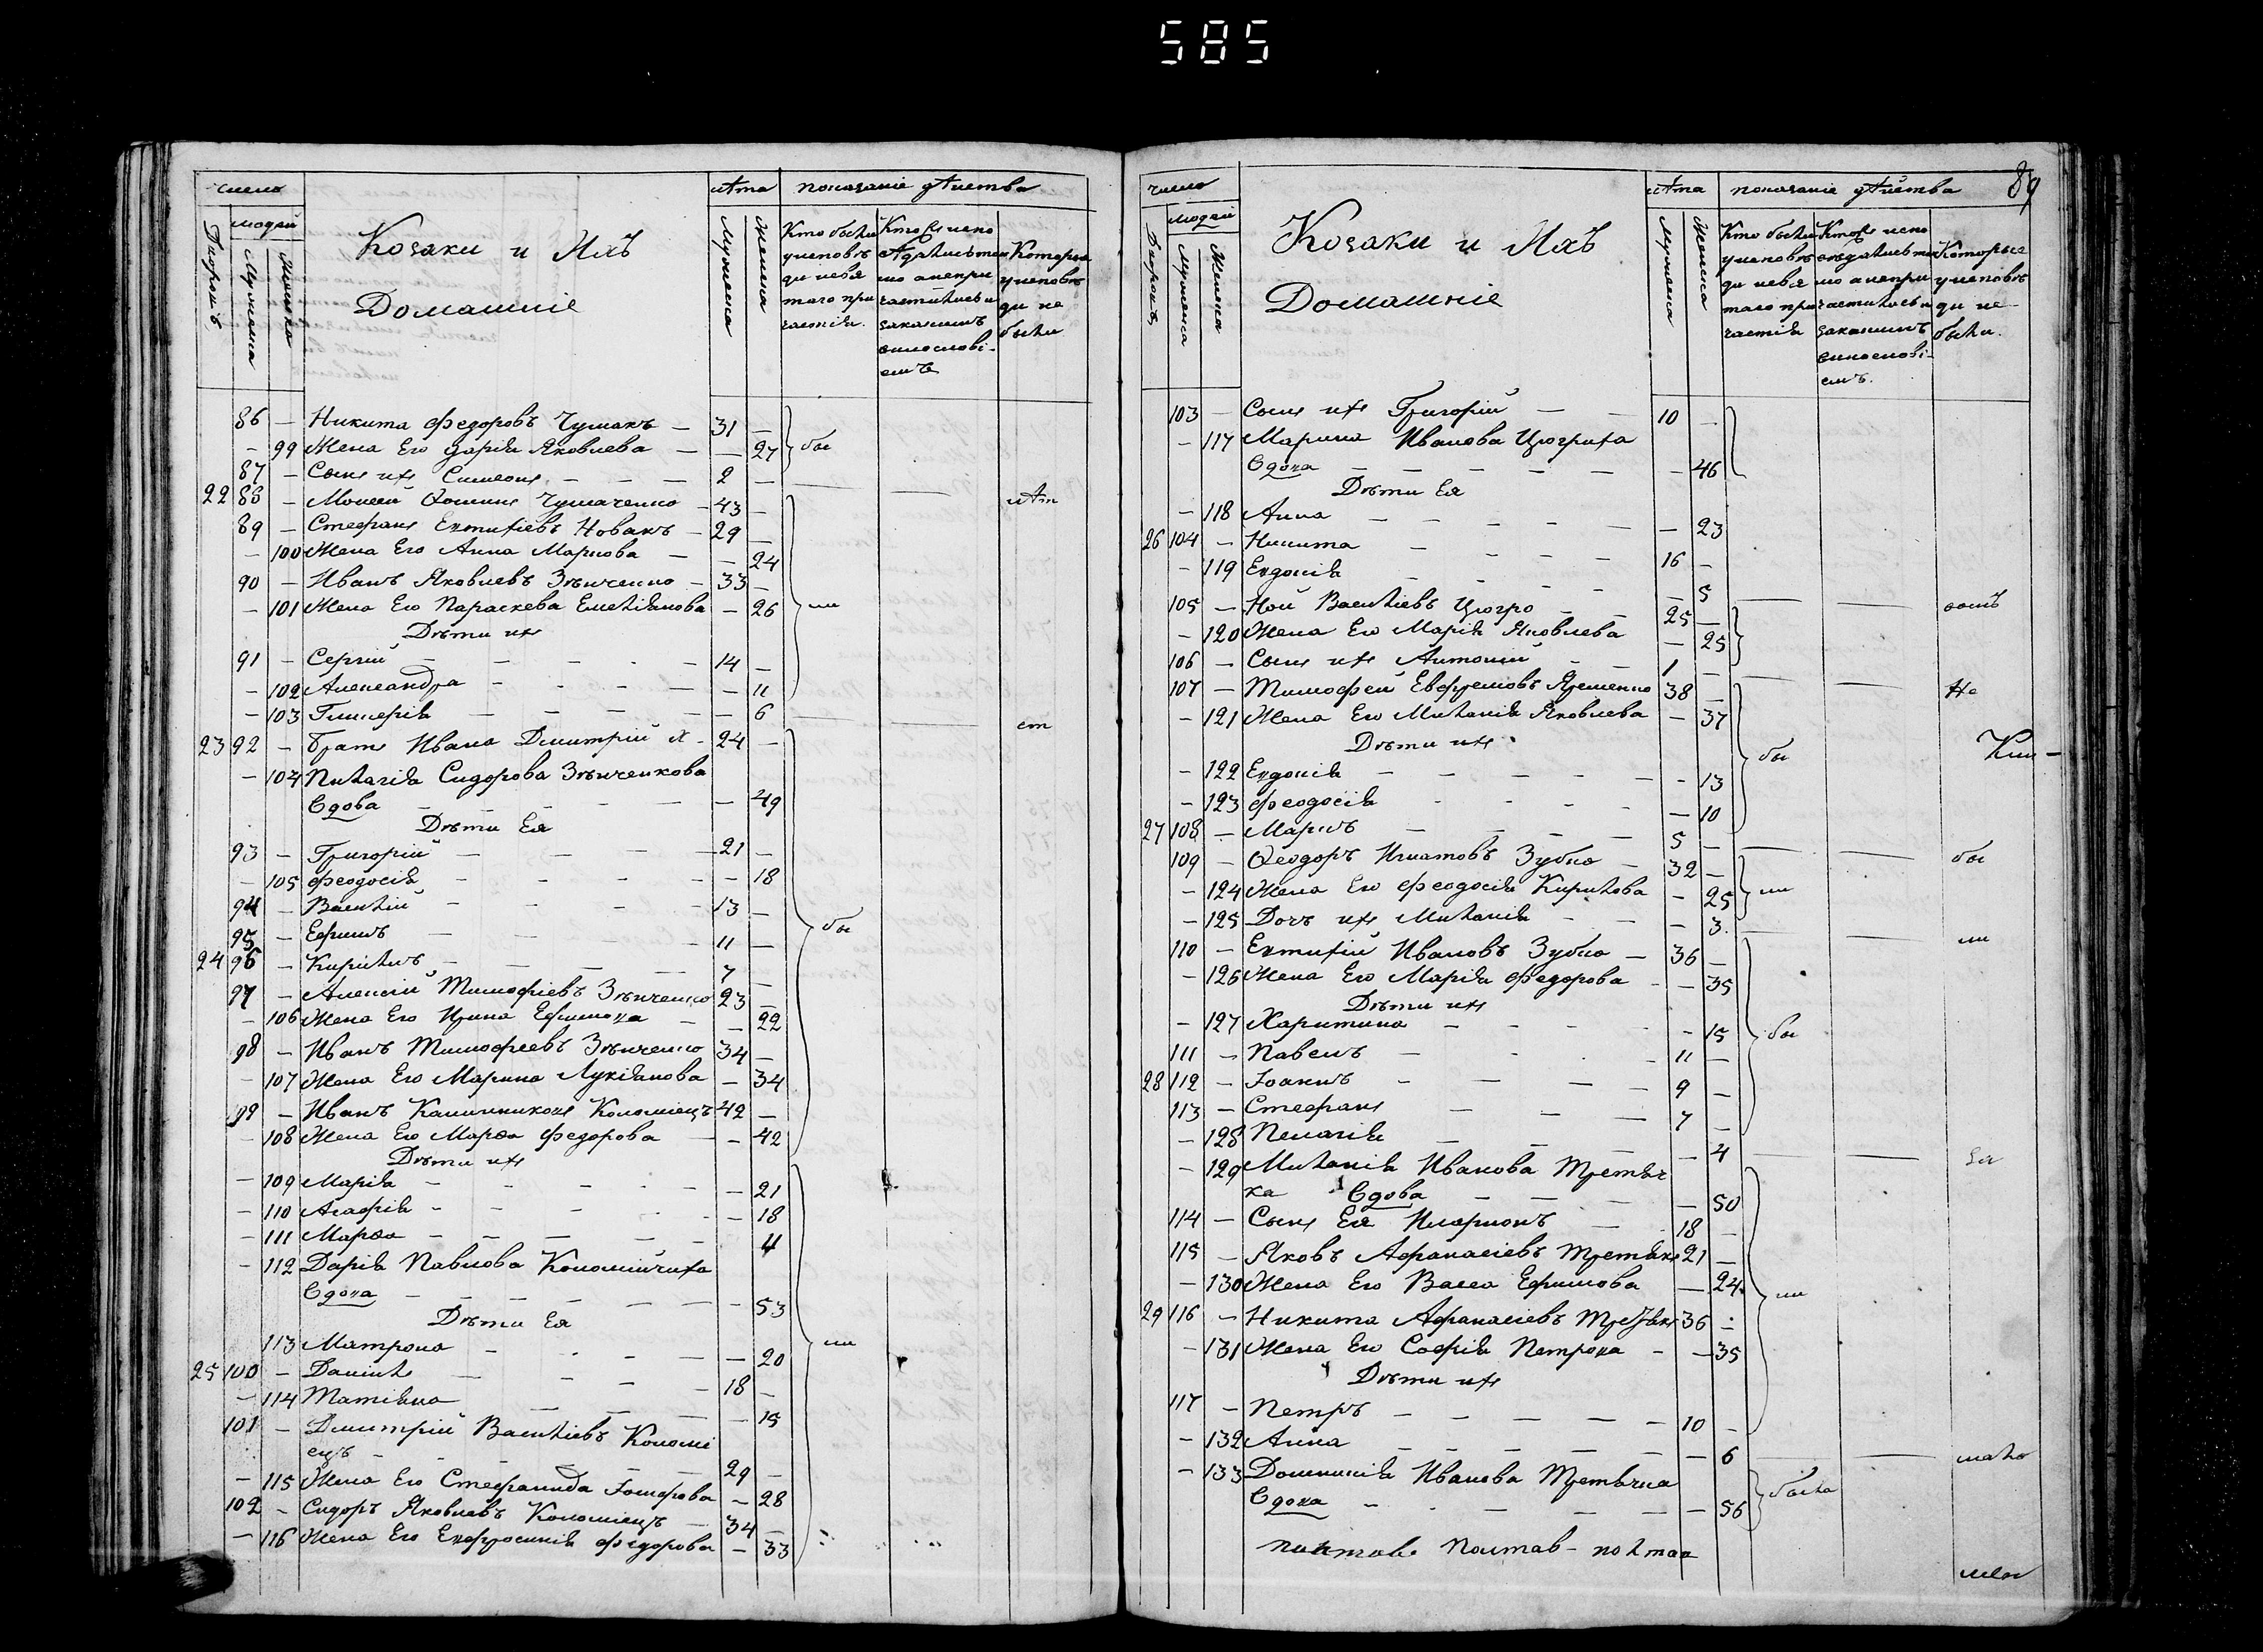 585
число
лѣта
показаніе дѣйства
людей
Дворовъ
Мужеска
Женска
Козаки и Ихъ
Домашніе
Мужеска
Женска
Кто были
у исповѣ
ди и свя
таго при
частія.
Которые
у исповѣ
ди не
были
86 — Никита Федоровъ Чумакъ — 31 —
— 99 Жена Его Дарія Яковлева — — 27 бы
87 — Сынъ ихъ Симеонъ — — — 2 —
22 88 — Моисей Ѳоминъ Чумаченко — 43 —
89 — Стефанъ Евтихіевъ Новакъ — 29 —
— 100 Жена Его Анна Маркова — — 24
90 — Иванъ Яковлевъ Зѣнченко — 33 —
— 101 Жена Его Параскева Емеліянова — 26 ли
Дѣти ихъ
91 — Сергій — — — — 14 —
— 102 Александра — — — — 11
— 103 Гликерія — — — — 6
23 92 — Братъ Ивана Димитрій Х — 24 —
— 104 Пелагія Сидорова Зѣнченкова
Вдова — — — — — 49
Дѣти Ея
93 — Григорій — — — 21 —
— 105 Феодосія — — — — 18
94 — Василій — — — 13 —
95 — Ефимъ — — — 11 — бы
24 96 — Кирилъ — — — 7 —
97 — Алексій Тимофіевъ Зѣнченко 23 —
— 106 Жена Его Ирина Ефимова — — 22
98 — Иванъ Тимофеевъ Зѣнченко 34 —
— 107 Жена Его Марина Лукіянова — 34
99 — Иванъ Калинниковъ Коломіецъ 42 —
— 108 Жена Его Марѳа Федорова — — 42
Дѣти ихъ
— 109 Марія — — — — — 21
— 110 Агафія — — — — — 18
— 111 Марѳа — — — — — 4
— 112 Дарія Павлова Коломійчиха
Вдова — — — — — — 53
Дѣти Ея
113 Матрона — — — — 20 ли
25 100 — Даніилъ — — — 18 —
— 114 Татіяна — — — — 15
101 — Димитрій Василіевъ Коломі
ецъ — — — — 29 —
— 115 Жена Его Стефанида Іосифова — 28
102 — Сидоръ Яковлевъ Коломіецъ — 34 —
— 116 Жена Его Евфросинія Федорова — 33
89
число
лѣта
показаніе дѣйства
людей
Дворовъ
Мужеска
Женска
Козаки и Ихъ
Домашніе
Мужеска
Женска
Кто были
у исповѣ
ди и свя
таго при
частія
Которые
у исповѣ
ди не
были.
103 — Сынъ ихъ Григорій — — 10 —
— 117 Марина Иванова Цюгриха
Вдова — — — — — — 46
Дѣти Ея
— 118 Анна — — — — — 23
26 104 — Никита — — — 16 —
— 119 Евдокія — — — — 5
105 — Ной Василіевъ Цюгро — — 25 —
— 120 Жена Его Марія Яковлева — 25
106 — Сынъ ихъ Антоній — — 1 —
107 — Тимофей Евфремовъ Яременко 38 — Не
— 121 Жена Его Меланія Яковлева — 37
Дѣти ихъ
— 122 Евдокія — — — — — 13 бы
— 123 Феодосія — — — — 10
27 108 — Маркъ — — — — 5 —
109 — Ѳеодоръ Игнатовъ Зубко — 32 — бы
— 124 Жена Его Феодосія Кирилова — 25 ли
— 125 Дочь ихъ Меланія — — — 3
110 — Евтихій Ивановъ Зубко — 36 — ли
— 126 Жена Его Марія Федорова — — 35
Дѣти ихъ
— 127 Харитина — — — — — 15 бы
111 — Павелъ — — — 11 —
28 112 — Іоакимъ — — — — 9 —
113 — Стефанъ — — — 7 —
— 128 Пелагія — — — — 4
— 129 Меланія Иванова Третяч
ка Вдова — — — — 50
114 — Сынъ Ея Иларионъ — 18 —
115 — Яковъ Афанасіевъ Третякъ 21 —
— 130 Жена Его Васса Ефимова — 24 ли
29 116 — Никита Афанасіевъ Третякъ 36 —
— 131 Жена Его Софія Петрова — — 35
Дѣти ихъ
117 — Петръ — — — — — 10 —
— 132 Анна — — — — — 6
— 133 Домникія Иванова Третячка
Вдова — — — — — 56 была